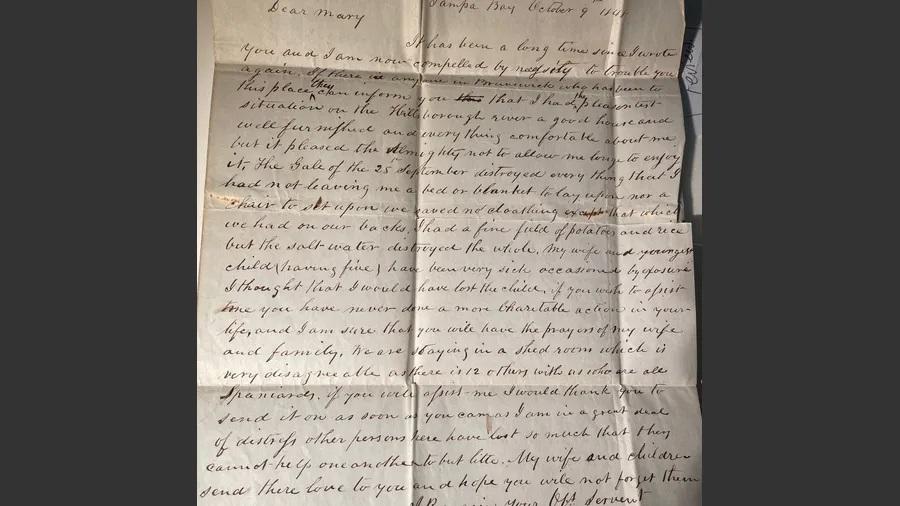 Tampa Bay October 9th 1848
Dear Mary
It has been a long time since I wrote
you and I am now compelled by nessity to trouble you
again. If there is any one in Brunswick who has been to
this place they can inform you that I had the pleasentest
situation on the Hillsborough river a good house and
well furnished and everything comfortable about me
but it pleased the Almighty not to allow me longe to enjoy
it, The Gale of the 25th September destroyed every thing that I
had not leaving me a bed or blanket to lay upon nor a
chair to set upon we saved no cloathing except that which
we had on our backs, I had a fine field of potatoes and rice
but the salt water destroyed the whole, My wife and youngest
child (having five) have been very sick occasioned by exposure
I thought that I would have lost the child, if you wish to assist
me you have never done a more Charitable action in your
life, and I am sure that you will have the prayers of my wife
and family, We are staying in a shed room which is
very disagreeable as there is 12 others with us who are all
Spaniards, if you will assist me I would thank you to
send it on as soon as you can as I am in a great deal
of distress other persons here have lost so much that they
cannot help one another to but little. My wife and children
send there love to you and hope you will not forget them
I Remain your Obt. Servent